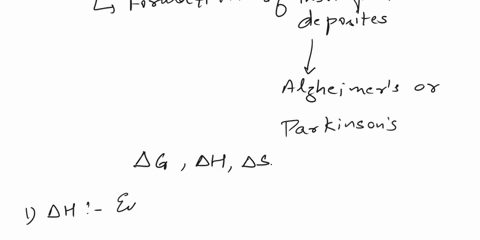 ↳ Formation of
deposites
↓
Alzheimer's or
Parkinson's
ΔG, ΔH, ΔS.
1) ΔH :- En